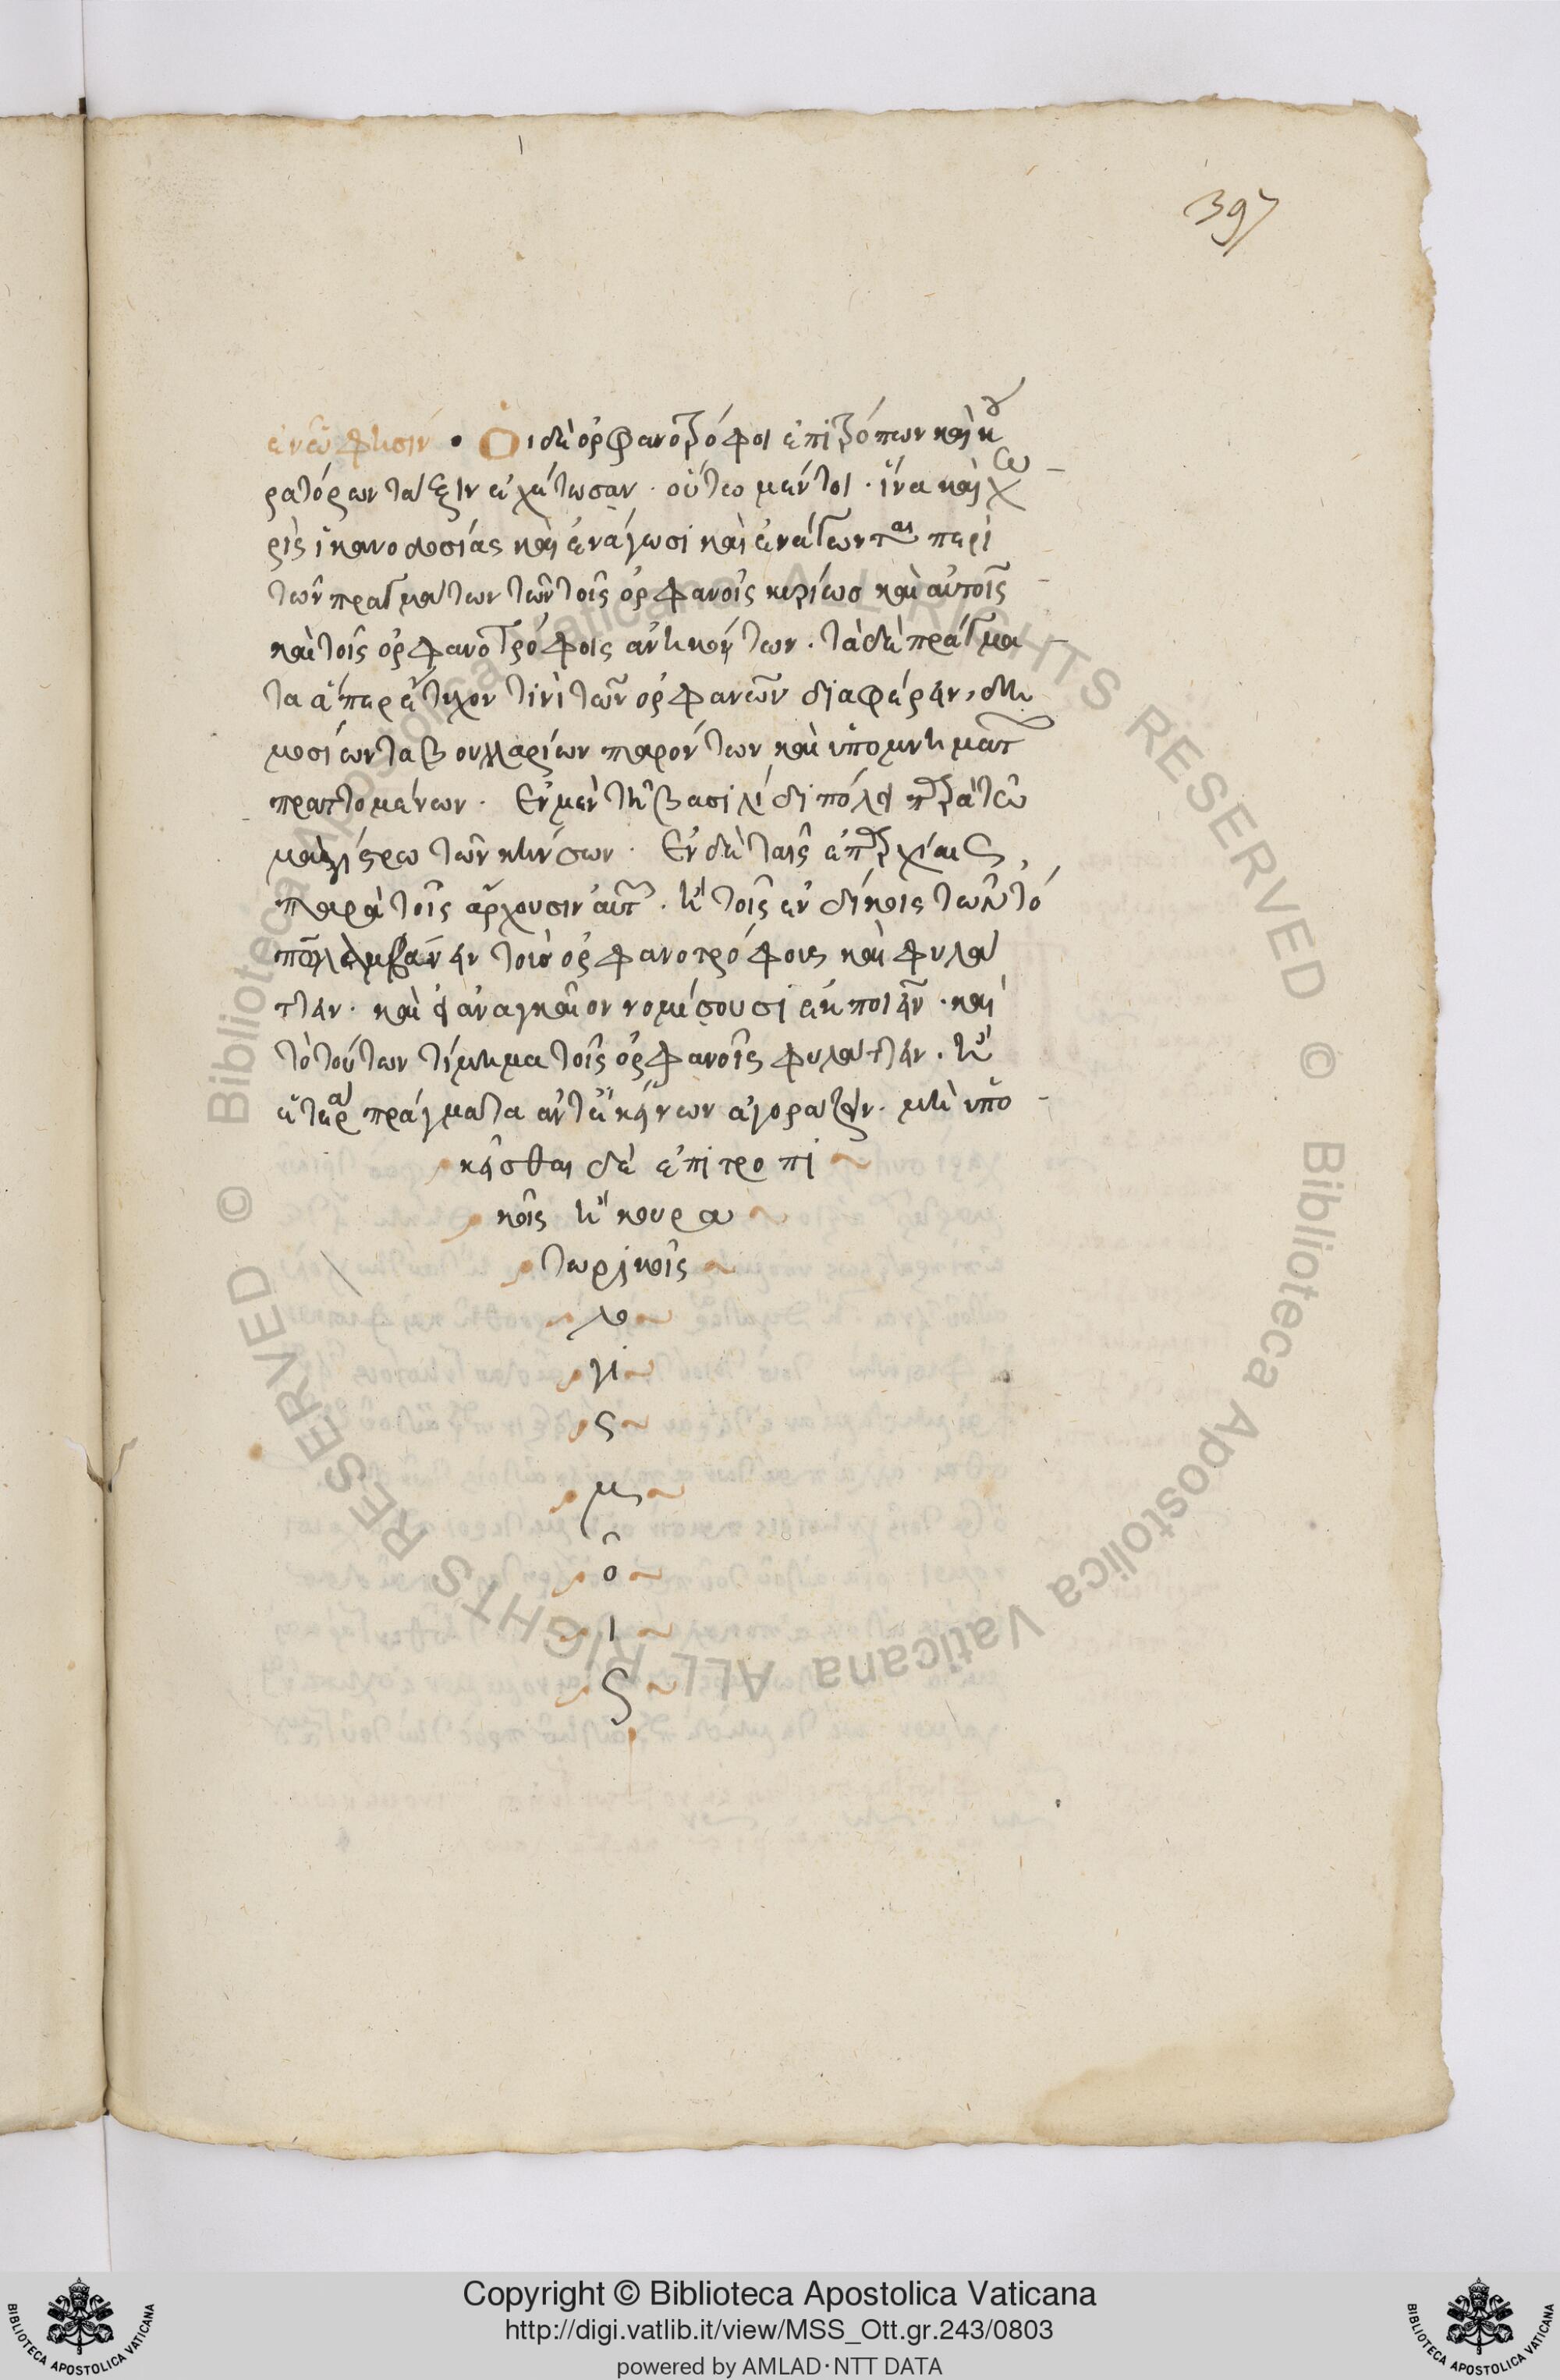 397
ἐν ᾧ φησίν · Οἱ δὲ ὀρφανοτρόφοι ἐπιτρόπων καὶ κου
ρατόρων τάξιν ἐχέτωσαν · οὕτω μέντοι · ἵνα καὶ χω
ρὶς ἱκανοδοσίας καὶ ἐνάγωσι καὶ ἐνάγωνται περὶ
τῶν πραγμάτων τῶν τοῖς ὀρφανοῖς κυρίως καὶ αὐτοῖς
καὶ τοῖς ὀρφανοτρόφοις ἀνηκόντων · τὰ δὲ πράγμα
τα ἅπερ ἔτυχον τινὶ τῶν ὀρφανῶν διαφέρειν, δη
μοσίων ταβουλλαρίων παρόντων καὶ ὑπομνημάτ
πραττομένων · Ἐν μὲν τῇ βασιλίδι πόλει παρὰ τῷ
μαγίστρω τῶν κήνσων · Ἐν δὲ ταῖς ἐπαρχίαις,
παρὰ τοῖς ἄρχουσιν αὐτ · ἢ τοῖς ἐνδίκοις τῶν τό
πων λαμβάνειν τοὺς ὀρφανοτρόφους καὶ φυλά
ττειν · καὶ εἰ ἀναγκαῖον νομίσουσι ἐκποιεῖν · καὶ
τὸ τούτων τίμημα τοῖς ὀρφανοῖς φυλάττειν · ἢ
ἕτερα πράγματα ἀντ' ἐκείνων ἀγοράζειν · μὴ ὑπο
κεῖσθαι δὲ ἐπιτροπι
κοῖς ἢ κουρα
τωρικοῖς
λο
γι
ς
μ
ο
ι
ς
Copyright © Biblioteca Apostolica Vaticana
http://digi.vatlib.it/view/MSS_Ott.gr.243/0803
powered by AMLAD·NTT DATA
© Biblioteca Apostolica Vaticana ALL RIGHTS RESERVED
© Biblioteca Apostolica Vaticana ALL RIGHTS RESERVED
BIBLIOTECA APOSTOLICA VATICANA
BIBLIOTECA APOSTOLICA VATICANA